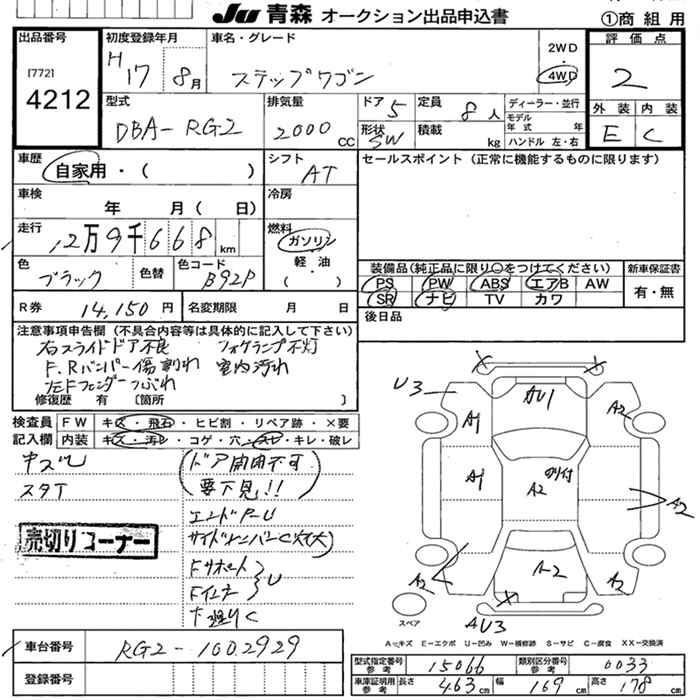 JU 青森 オークション出品申込書
①商組用
出品番号
[772]
4212
初度登録年月
H17 8月
車名・グレード
ステップワゴン
2WD
4WD
評価点
2
外装 内装
E C
型式
DBA-RG2
排気量
2000 CC
ドア 5
定員 8人
形状 SW
積載 kg
ディーラー・並行
モデル年式 年
ハンドル 左・右
車歴
自家用・( )
シフト
AT
セールスポイント (正常に機能するものに限ります)
車検
年 月( 日)
冷房
走行
12万9千668 km
燃料
ガソリン
軽・油
( )
色
ブラック
色替
色コード
B92P
装備品(純正品に限り○をつけてください)
PS PW ABS エアB AW
SR ナビ TV カワ
新車保証書
有・無
R券 14,150円
名変期限 月 日
後日品
注意事項申告欄 (不具合内容等は具体的に記入して下さい)
右スライドドア不良 フォグランプ不灯
F.Rバンパー傷割れ 室内汚れ
左Fフェンダーつぶれ
修復歴 有 〔箇所 〕
検査員記入欄
FW キズ・飛石・ヒビ割・リペア跡・×要
内装 キズ・汚レ・コゲ・穴・スレ・キレ・破レ
キズル
スタT
(ドア開閉不可)
(要下見!!)
エンドP-U
Fサポート
Fインナー
U
下廻りC
売切りコーナー
U3
AU1
A1
A2
A1
A2
A2
A2
A2
AU3
スペア
A=キズ E=エクボ U=凹み W=補修跡 S=サビ C=腐食 XX=交換済
車台番号
RG2-1002929
登録番号
型式指定番号 参考 15066
類別区分番号 参考 0033
車庫証明用 参考 長さ 463cm 幅 169cm 高さ 178cm